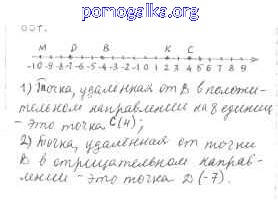 pomogalka.org
M D B K C
-10 -9 -8 -7 -6 -5 -4 -3 -2 -1 0 1 2 3 4 5 6 7 8 9
1) Точка, удаленная от B в положи-
тельном направлении на 8 единиц
- это точка C(4);
2) Точка, удаленная от точки
B в отрицательном направ-
лении - это точка D (-7).